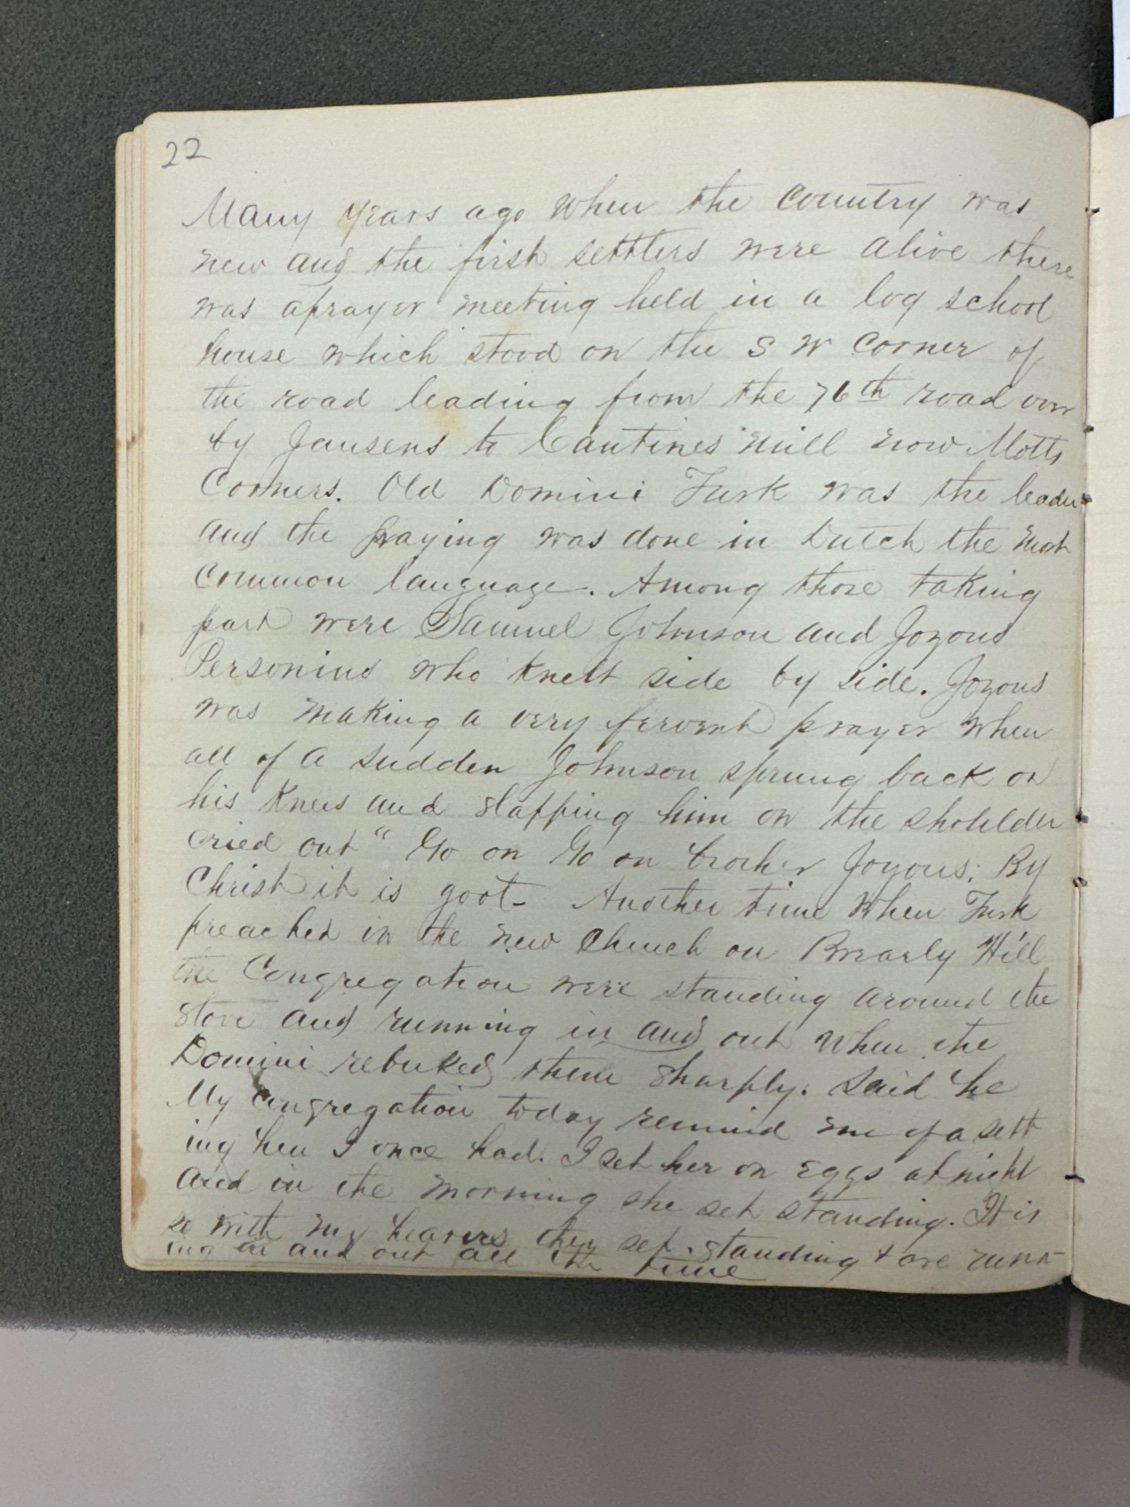 22
Many years ago when the country was
new and the first settlers were alive there
was a prayer meeting held in a log school
house which stood on the S W Corner of
the road leading from the 76th road over
by Jansens to Cantines Mill now Motts
Corners. Old Domini Turk was the leader
and the praying was done in Dutch the most
common language. Among those taking
part were Samuel Johnson and Joyous
Personius who knelt side by side. Joyous
was making a very fervent prayer when
all of a sudden Johnson sprung back on
his knees and slapping him on the shoulder
cried out "Go on Go on brother Joyous; By
Christ it is goot- Another time when Turk
preached in the new Church on Brearly Hill
the Congregation were standing around the
stove and running in and out when the
Domini rebuked them sharply. Said he
My congregation today remind me of a sett
ing hen I once had. I set her on eggs at night
and in the morning she set standing. It is
so with my hearers they set standing & are runn-
ing in and out all the time